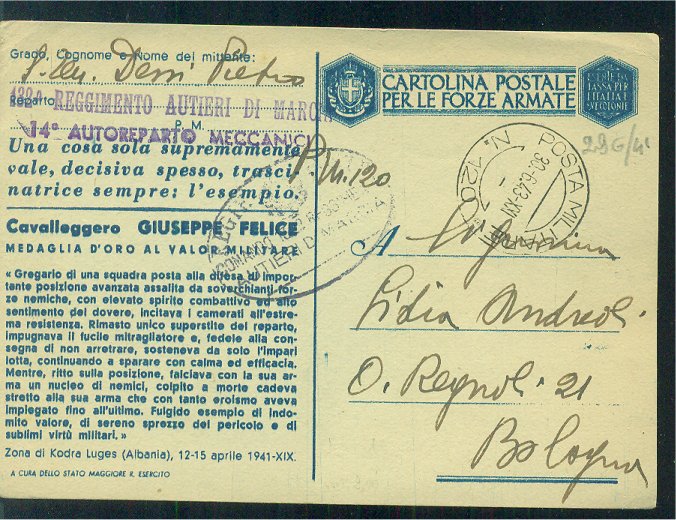 Grado, Cognome e Nome del mittente:
Dessì Pietro
Reparto
REGGIMENTO AUTIERI DI MARCIA
P. M.
14° AUTOREPARTO MECCANICI
P. M. 120
Una cosa sola supremamente
vale, decisiva spesso, trasci-
natrice sempre: l'esempio.
AUTIERI DI MARCIA
Cavalleggero GIUSEPPE FELICE
MEDAGLIA D'ORO AL VALOR MILITARE
« Gregario di una squadra posta alla difesa di impor-
tante posizione avanzata assalita da soverchianti for-
ze nemiche, con elevato spirito combattivo ed alto
sentimento del dovere, incitava i camerati all'estre-
ma resistenza. Rimasto unico superstite del reparto,
impugnava il fucile mitragliatore e, fedele alla con-
segna di non arretrare, sosteneva da solo l'impari
lotta, continuando a sparare con calma ed efficacia.
Mentre, ritto sulla posizione, falciava con la sua ar-
ma un nucleo di nemici, colpito a morte cadeva
stretto alla sua arma che con tanto eroismo aveva
impiegato fino all'ultimo. Fulgido esempio di indo-
mito valore, di sereno sprezzo del pericolo e di
sublimi virtù militari. »
Zona di Kodra Luges (Albania), 12-15 aprile 1941-XIX.
A CURA DELLO STATO MAGGIORE R. ESERCITO
CARTOLINA POSTALE
PER LE FORZE ARMATE
POSTA MILITARE
N. 120
30.6.43.XXI
A Signorina
Lidia Andreoli
O. Regnoli 21
Bologna